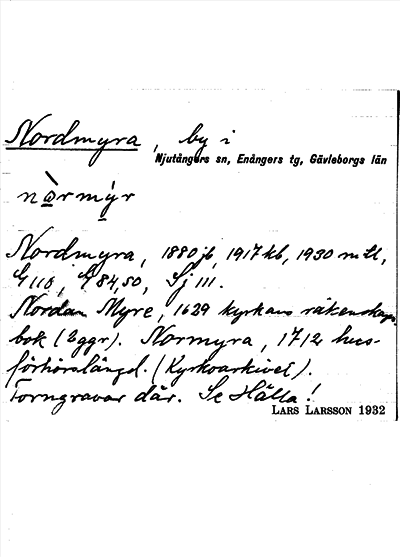 Nordmyra, by i
Njutångers sn, Enångers tg, Gävleborgs län
nò̱rmý̱r
Nordmyra, 1880 jb, 1917 kb, 1930 mtl,
G 110, G 84,50, Sj 111.
Nordan Myre, 1629 kyrkans räkenskaps-
bok (Eggr). Normyra, 1712 hus-
förhörslängd. (Kyrkoarkivet).
Forngravar där. Se Hälla!
LARS LARSSON 1932